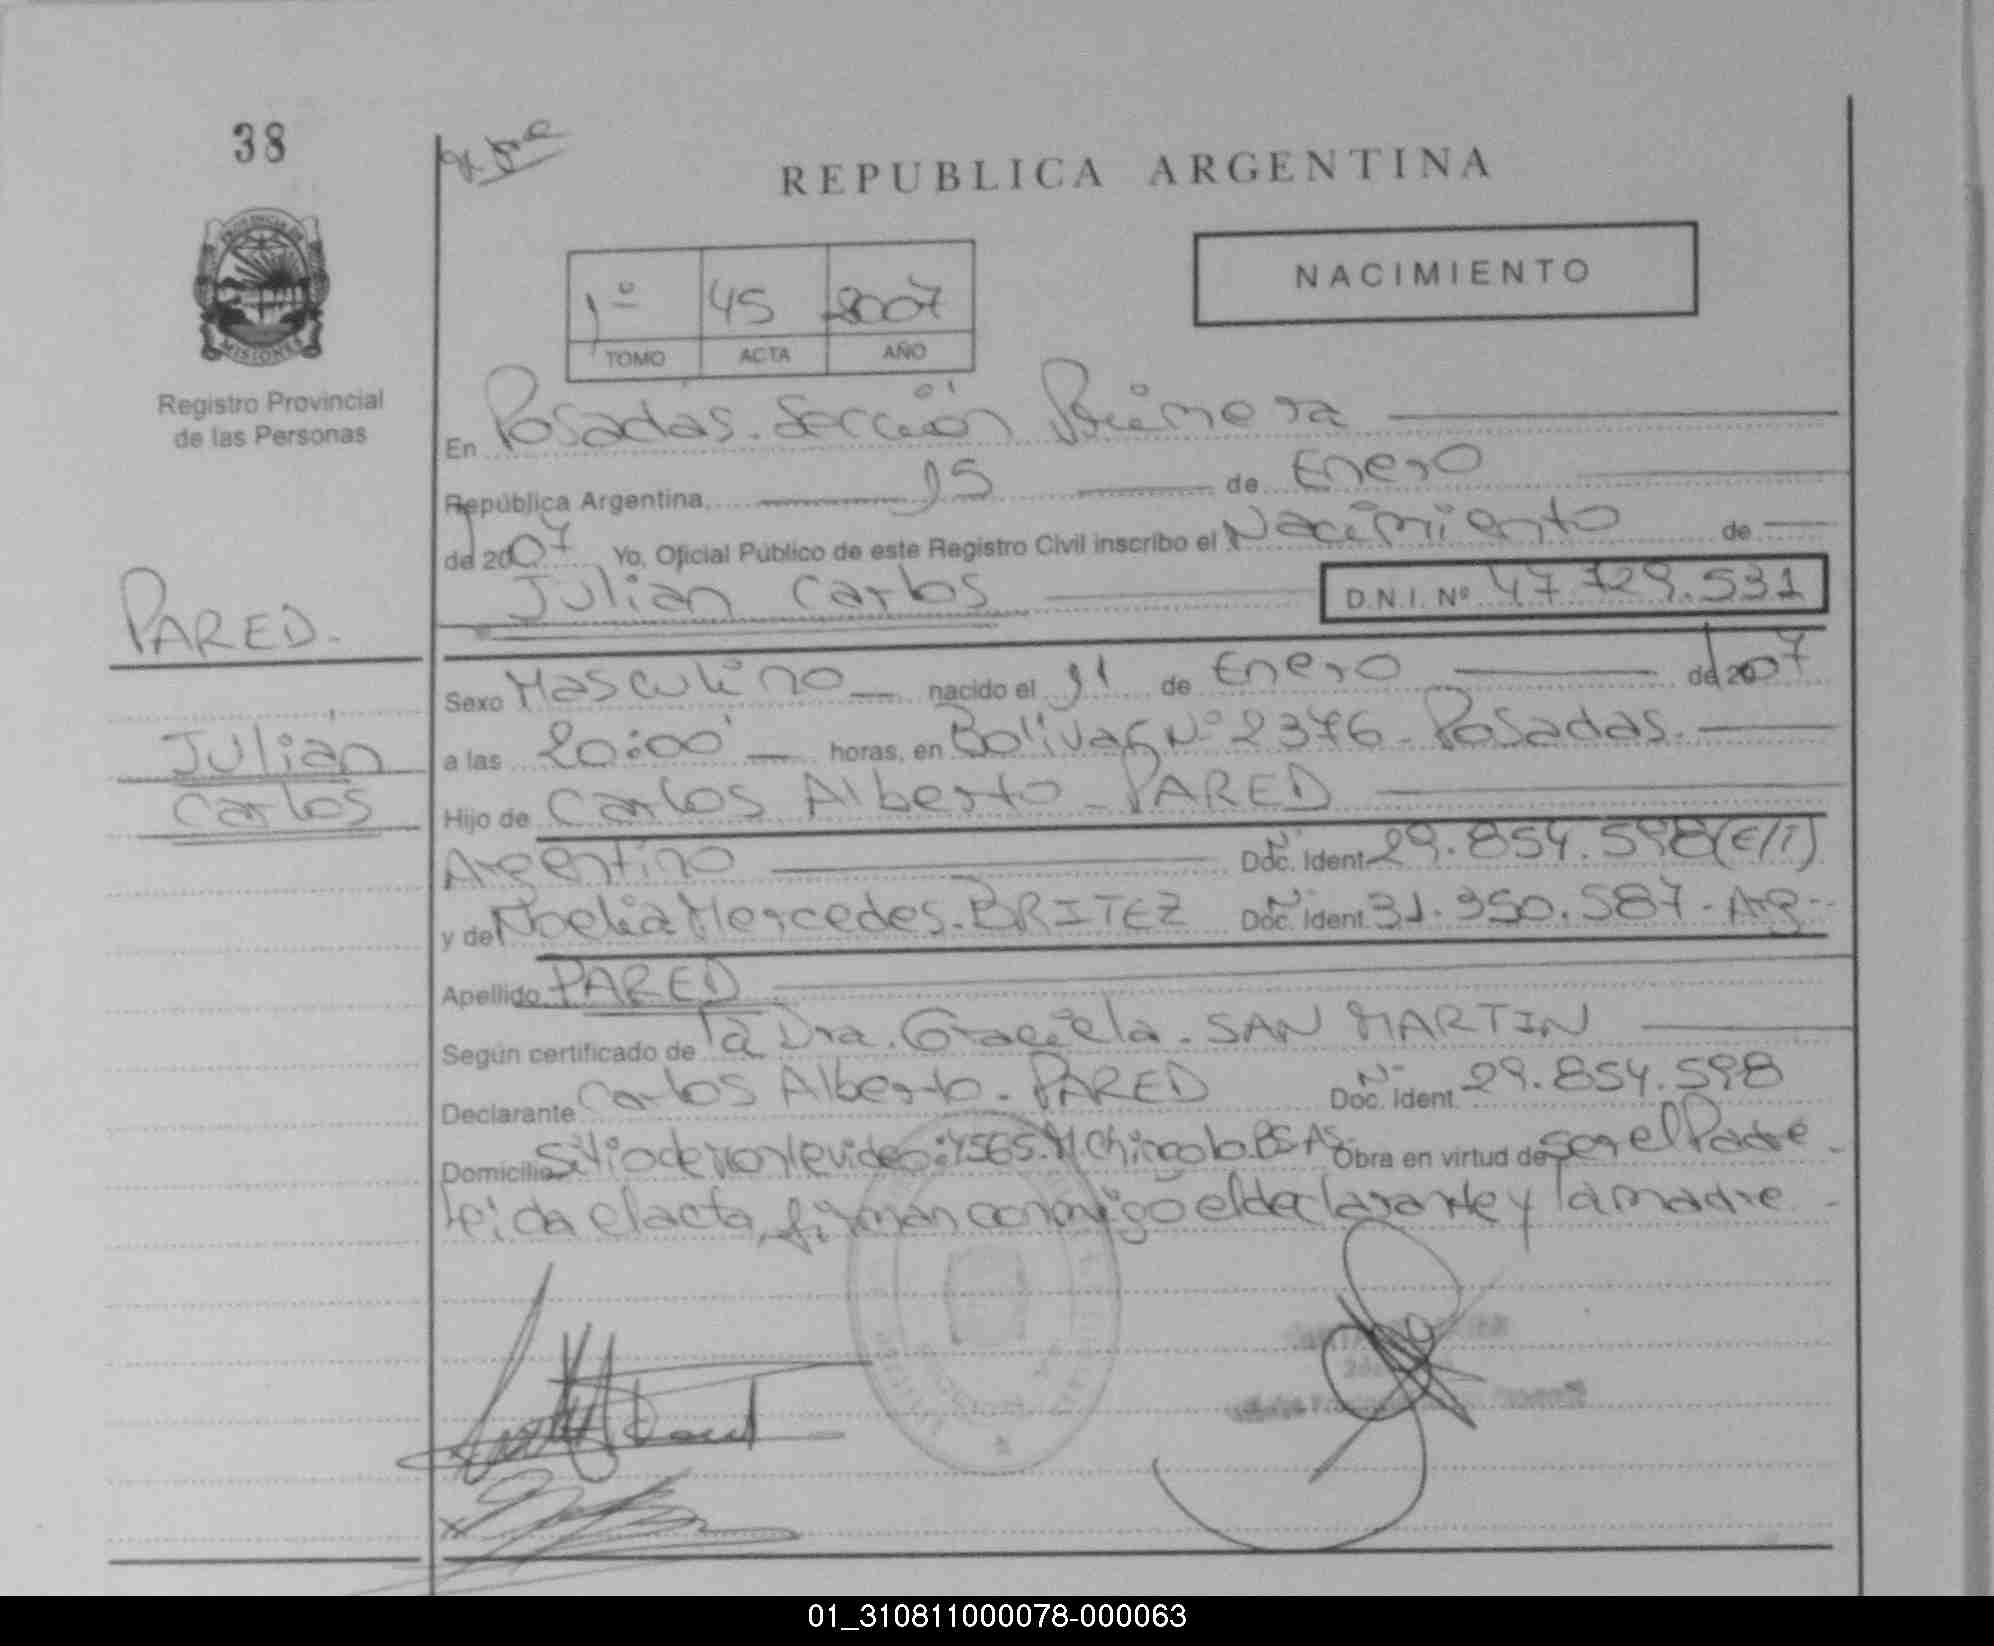 38
REPUBLICA ARGENTINA
PROVINCIA DE
MISIONES
Registro Provincial
de las Personas
NACIMIENTO
1º 45 2007
TOMO ACTA AÑO
En Posadas. Sección Primera
República Argentina, 15 de Enero
del 2007 Yo, Oficial Público de este Registro Civil inscribo el Nacimiento de
Julian Carlos D.N.I. Nº 47.729.531
PARED.
Julian
Carlos
Sexo Masculino nacido el 11 de Enero del 2007
a las 20:00' horas, en Bolivar Nº 2376. Posadas.
Hijo de Carlos Alberto - PARED
Argentino Doc. Ident. Nº 29.854.598 (E/T)
y de Noelia Mercedes. BRITEZ Doc. Ident. Nº 31.950.587 - Arg -
Apellido PARED
Según certificado de la Dra. Graciela. SAN MARTIN
Declarante Carlos Alberto. PARED Doc. Ident. Nº 29.854.598
Domicilio Sitio de Montevideo: 4565. Bs As. Obra en virtud de Ser el Padre -
Leida el acta, firman conmigo el declarante y la madre -
01_310811000078-000063